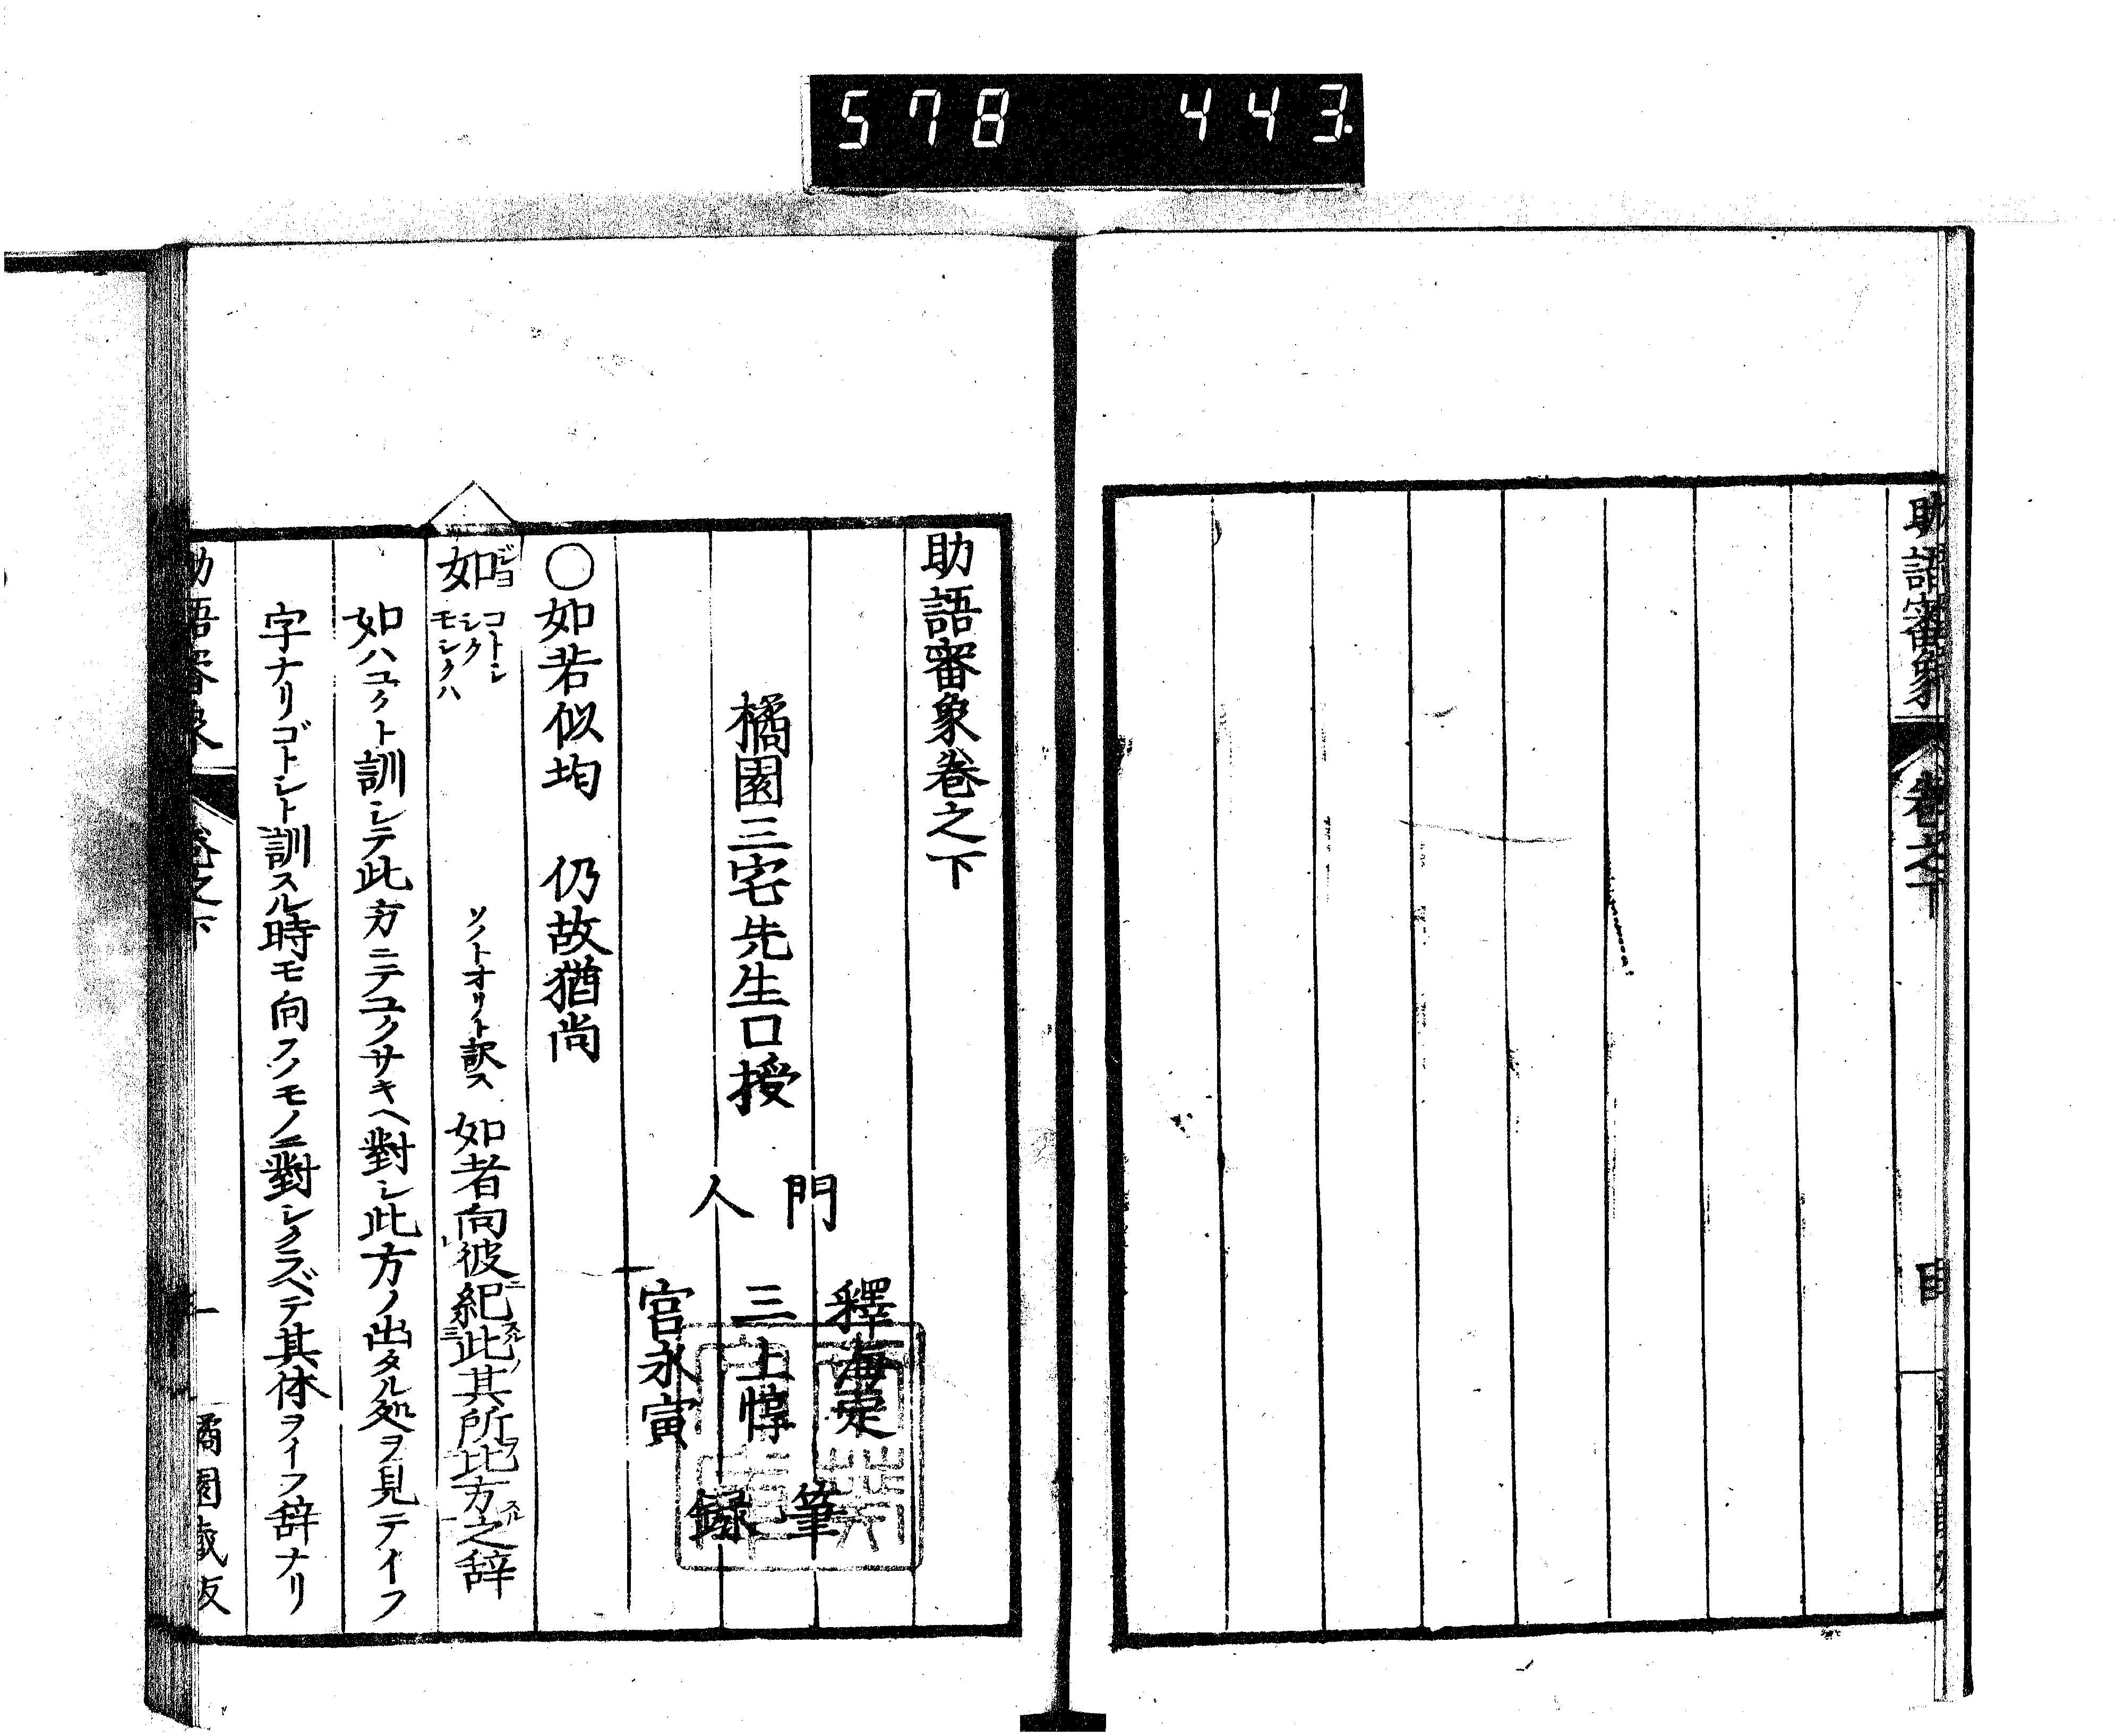 578 443.
助語審象
卷之下
目
助語審象卷之下
橘園三宅先生口授
門人
釋海定
三上惇
宮永寅
筆録
○如若似均 仍故猶尚
如 コトシ シク モシクハ
ソノトオリト訳ス 如者向彼紀此其所比方之辞
如ハユクト訓シテ此方ニテユクサキヘ對シ此方ノ出タル処ヲ見テイフ
字ナリゴトシト訓スル時モ向フノモノニ對シクラベテ其体ヲイフ辞ナリ
助語審象
卷之下
一
橘園蔵版